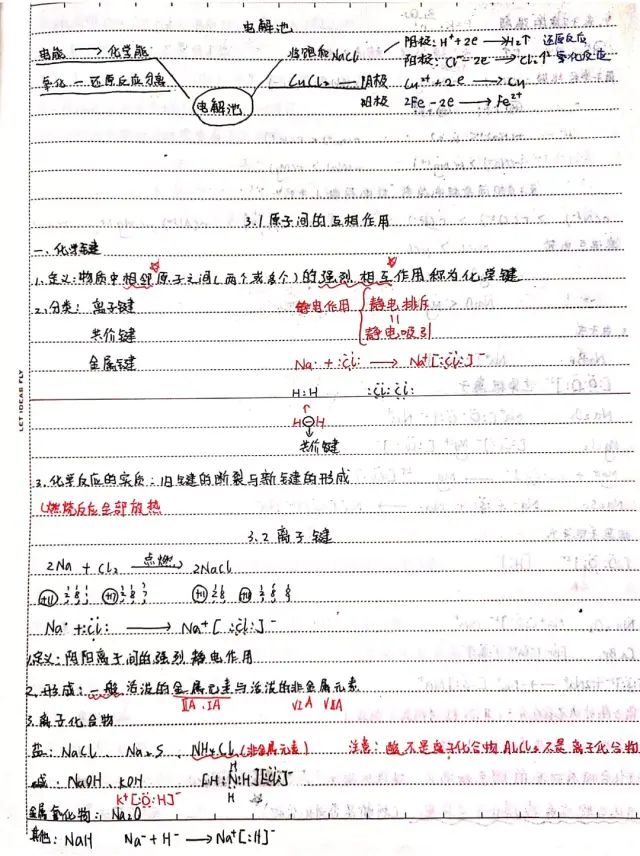 电解池
电能 → 化学能
氧化-还原反应分离
电解池
饱和NaCl
阴极: H⁺+2e → H₂↑ 还原反应
阳极: Cl⁻-2e → Cl₂↑ 氧化反应
CuCl₂ 阴极 Cu²⁺+2e → Cu
阳极 2Fe-2e → Fe²⁺
3.1 原子间的互相作用
一、化学键
1.定义:物质中相邻原子之间(两个或多个)的强烈相互作用称为化学键
2.分类: 离子键
共价键
金属键
静电作用 { 静电排斥
静电吸引
Na· + :Cl: → Na⁺[:Cl:]⁻
H:H :Cl:Cl:
H H
共价键
3.化学反应的实质:旧键的断裂与新键的形成
燃烧反应全部放热
3.2 离子键
2Na + Cl₂ 点燃 → 2NaCl
+11 2 8 1 +17 2 8 7 +11 2 8 2 8 8
Na· + :Cl: → Na⁺[:Cl:]⁻
1.定义:阴阳离子间的强烈静电作用
2.形成:一般活泼的金属元素与活泼的非金属元素
ⅡA、ⅠA ⅥA ⅦA
3.离子化合物
盐: NaCl、Na₂S、NH₄Cl(非金属元素) 注意: 酸不是离子化合物 AlCl₃不是离子化合物
碱: NaOH、KOH [H:N:H][:Cl:]⁻
H
H
K⁺[:O:H]⁻
金属氧化物: Na₂O
其他: NaH Na⁻+H⁻ → Na⁺[:H]⁻
LET IDEAS FLY